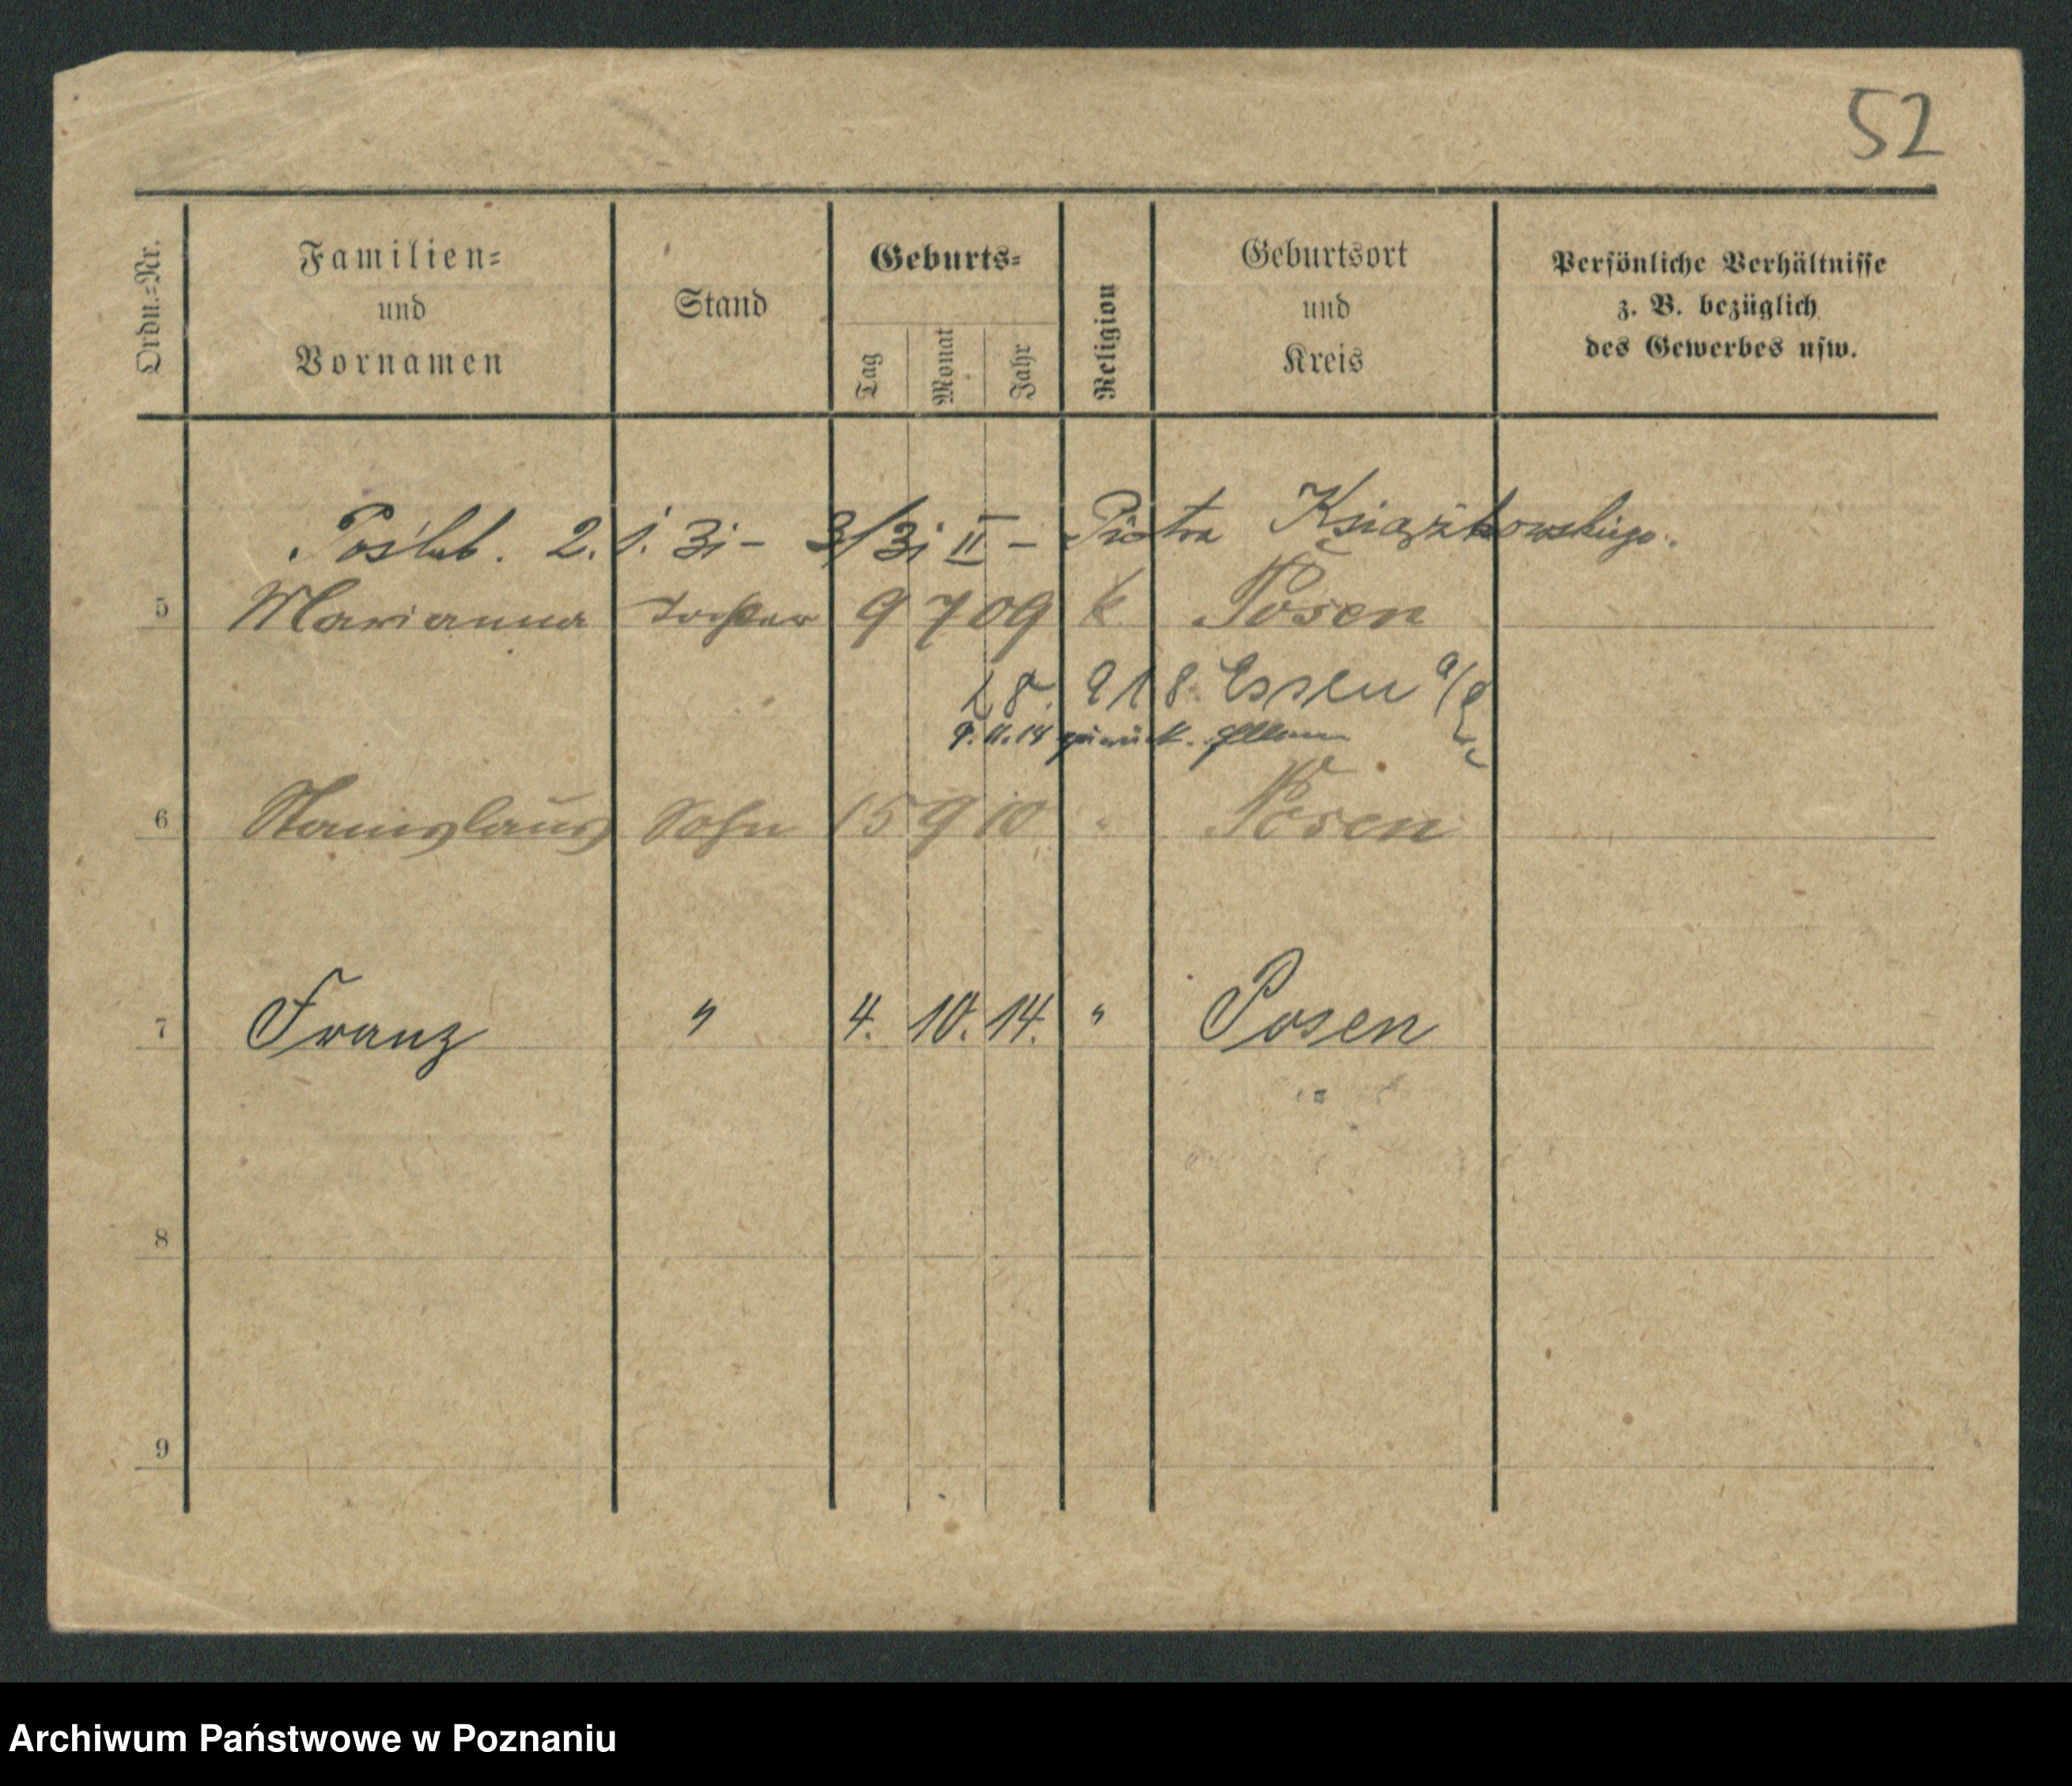 52
Ordn.=Nr.
Familien=
und
Vornamen
Stand
Geburts=
Tag
Monat
Jahr
Religion
Geburtsort
und
Kreis
Persönliche Verhältnisse
z. B. bezüglich
des Gewerbes usw.
Poślub. 2. 1. 31 - 3/31 II - Piotra Książkowskiego.
5 Marianna Tochter 9 7 09 k. Posen
8. 918. Essen a/R
9.11.14 zurück.
6 Stanislaus Sohn 15 9 10 " Posen
7 Franz " 4. 10. 14. " Posen
8
9
Archiwum Państwowe w Poznaniu